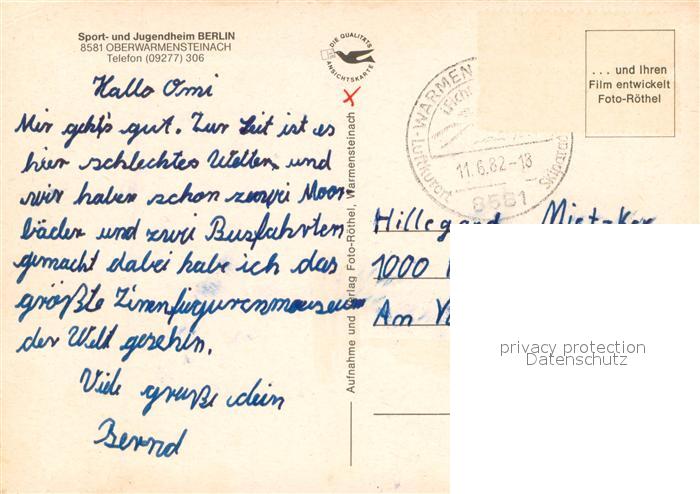 Sport- und Jugendheim BERLIN
8581 OBERWARMENSTEINACH
Telefon (09277) 306
DIE QUALITÄTS
ANSICHTSKARTE
Hallo Omi
Mir geht's gut. Zur Zeit ist es
hier schlechtes Wetter, und
wir haben schon zwei Moor-
bäder und zwei Busfahrten
gemacht dabei habe ich das
größte Zinnfigurenmouseum
der Welt gesehin.
Viele gruße dein
Bernd
Aufnahme und Verlag Foto-Röthel, Warmensteinach
WARMEN
Luftkurort
11.6.82-18
8581
... und Ihren
Film entwickelt
Foto-Röthel
Hillegard Mietzker
1000
Am
privacy protection
Datenschutz